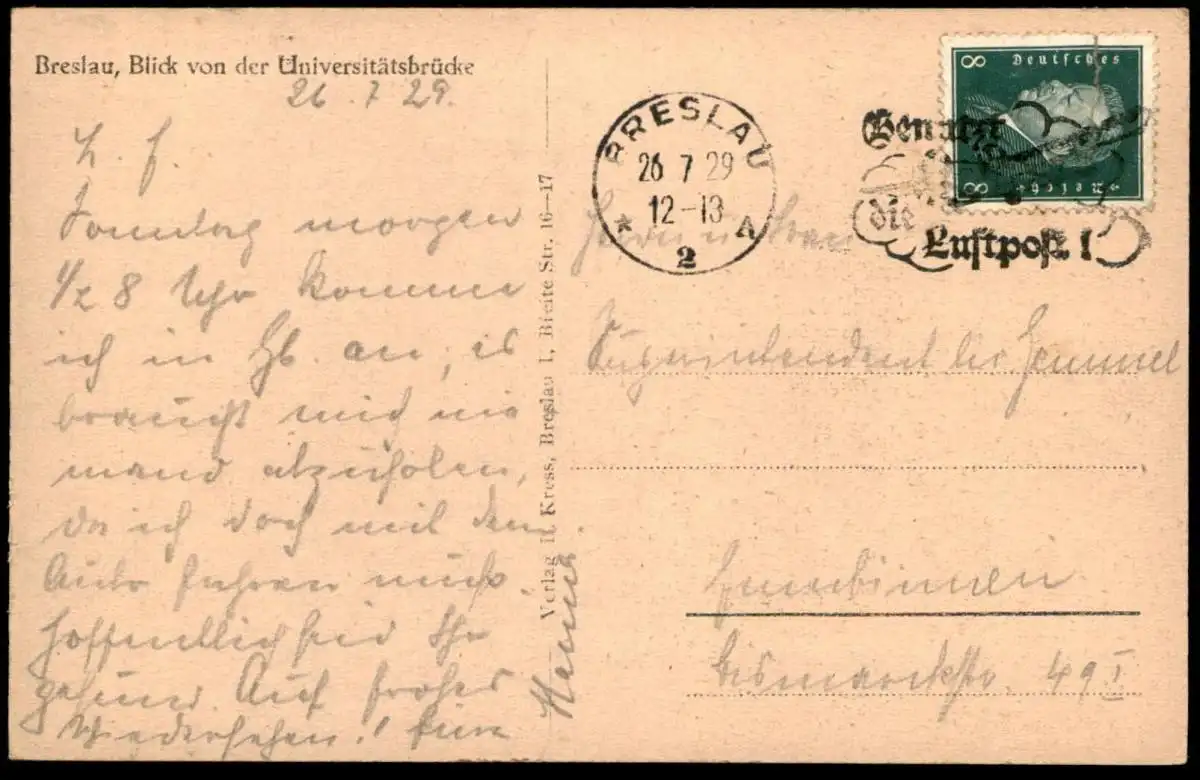 Breslau, Blick von der Universitätsbrücke
26. 7 29.
L. E.
Sonntag morgen
1/2 8 Uhr komme
ich in Gb. an, es
braucht mich nie
mand abzuholen,
da ich doch mit dem
Auto fahren muß.
Hoffentlich seid Ihr
gesund. Auf frohes
Wiedersehen! Eure
Hanna
Verlag H. Kress, Breslau 1, Breite Str. 16-17
BRESLAU
26 7 29
12-13
* 2 A
Benutzt
die
Luftpost!
8 Deutsches
8 Reich
Herrn u. Frau
Superintendent
Gumbinnen
Bismarckstr. 49 I